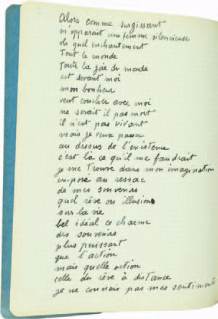 Alors comme surgissant
m'apparaît une femme silencieuse
de quel enchantement
Tout le monde
Toute la joie du monde
est devant moi
mon bonheur
veut coucher avec moi
ne serait il pas mort
il n'est pas vivant
mais je veux passer
au dessus de l'existence
c'est là ce qu'il me faudrait
je me trouve dans mon imagination
exposé au ressac
de mes souvenirs
quel rêve ou illusion
sur la vie
bel idéal ce charme
des souvenirs
plus puissant
que l'action
mais quelle action
celle du rêve à distance
je ne connais pas mes sentiments